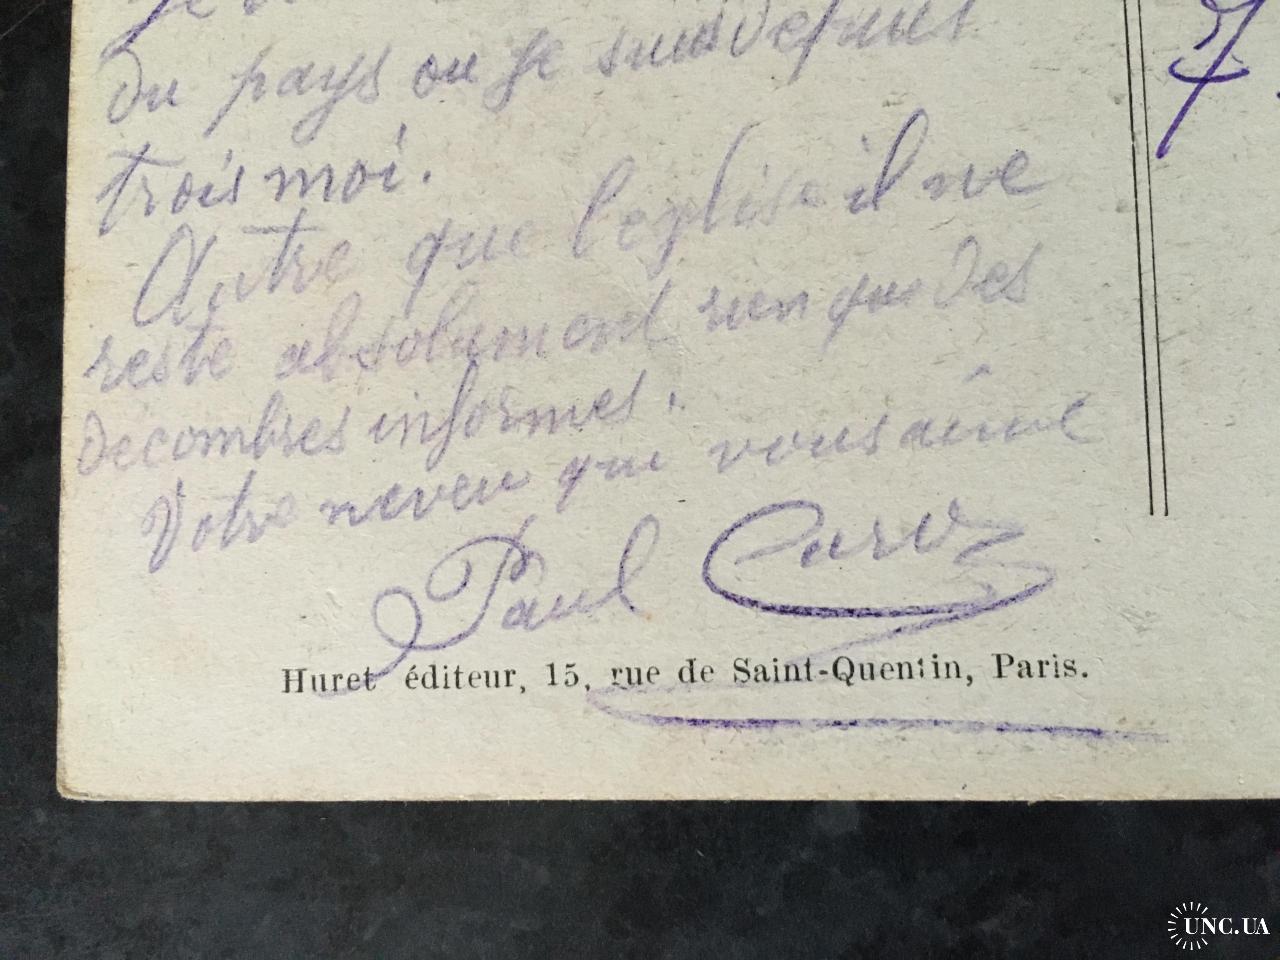 Je
du pays ou je suis depuis
trois moi.
Autre que l'eglise il ne
reste absolument rien que des
decombres informes.
Votre neveu qui vous aime
Paul
Huret éditeur, 15, rue de Saint-Quentin, Paris.
UNC.UA